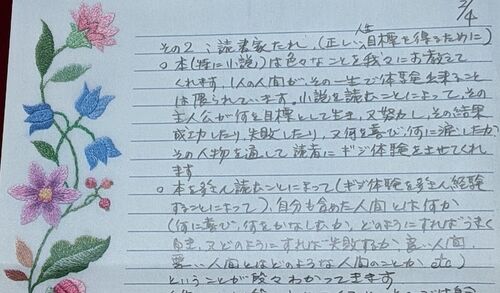 3/4
その2:読書家たれ、(正しい人生目標を得るために)
○本(特に小説)は色々なことを我々にお教えて
くれます。1人の人間が、その一生で体験出来ること
は限られています。小説を読むことによって、その
主人公が何を目標として生き、又努力し、その結果
成功したり、失敗したり、又何を喜び、何に涙したか、
その人物を通して読者にギジ体験をさせてくれ
ます
○本を沢山読むことによって(ギジ体験を沢山経験
することによって)、自分も含めた人間とは何か
(何に喜び、何をかなしむか、どのようにすればうまく
ゆき、又どのようにすれば失敗するか 良い人間、
悪い人間とはどのような人間のことか etc)
ということが段々わかって来ます